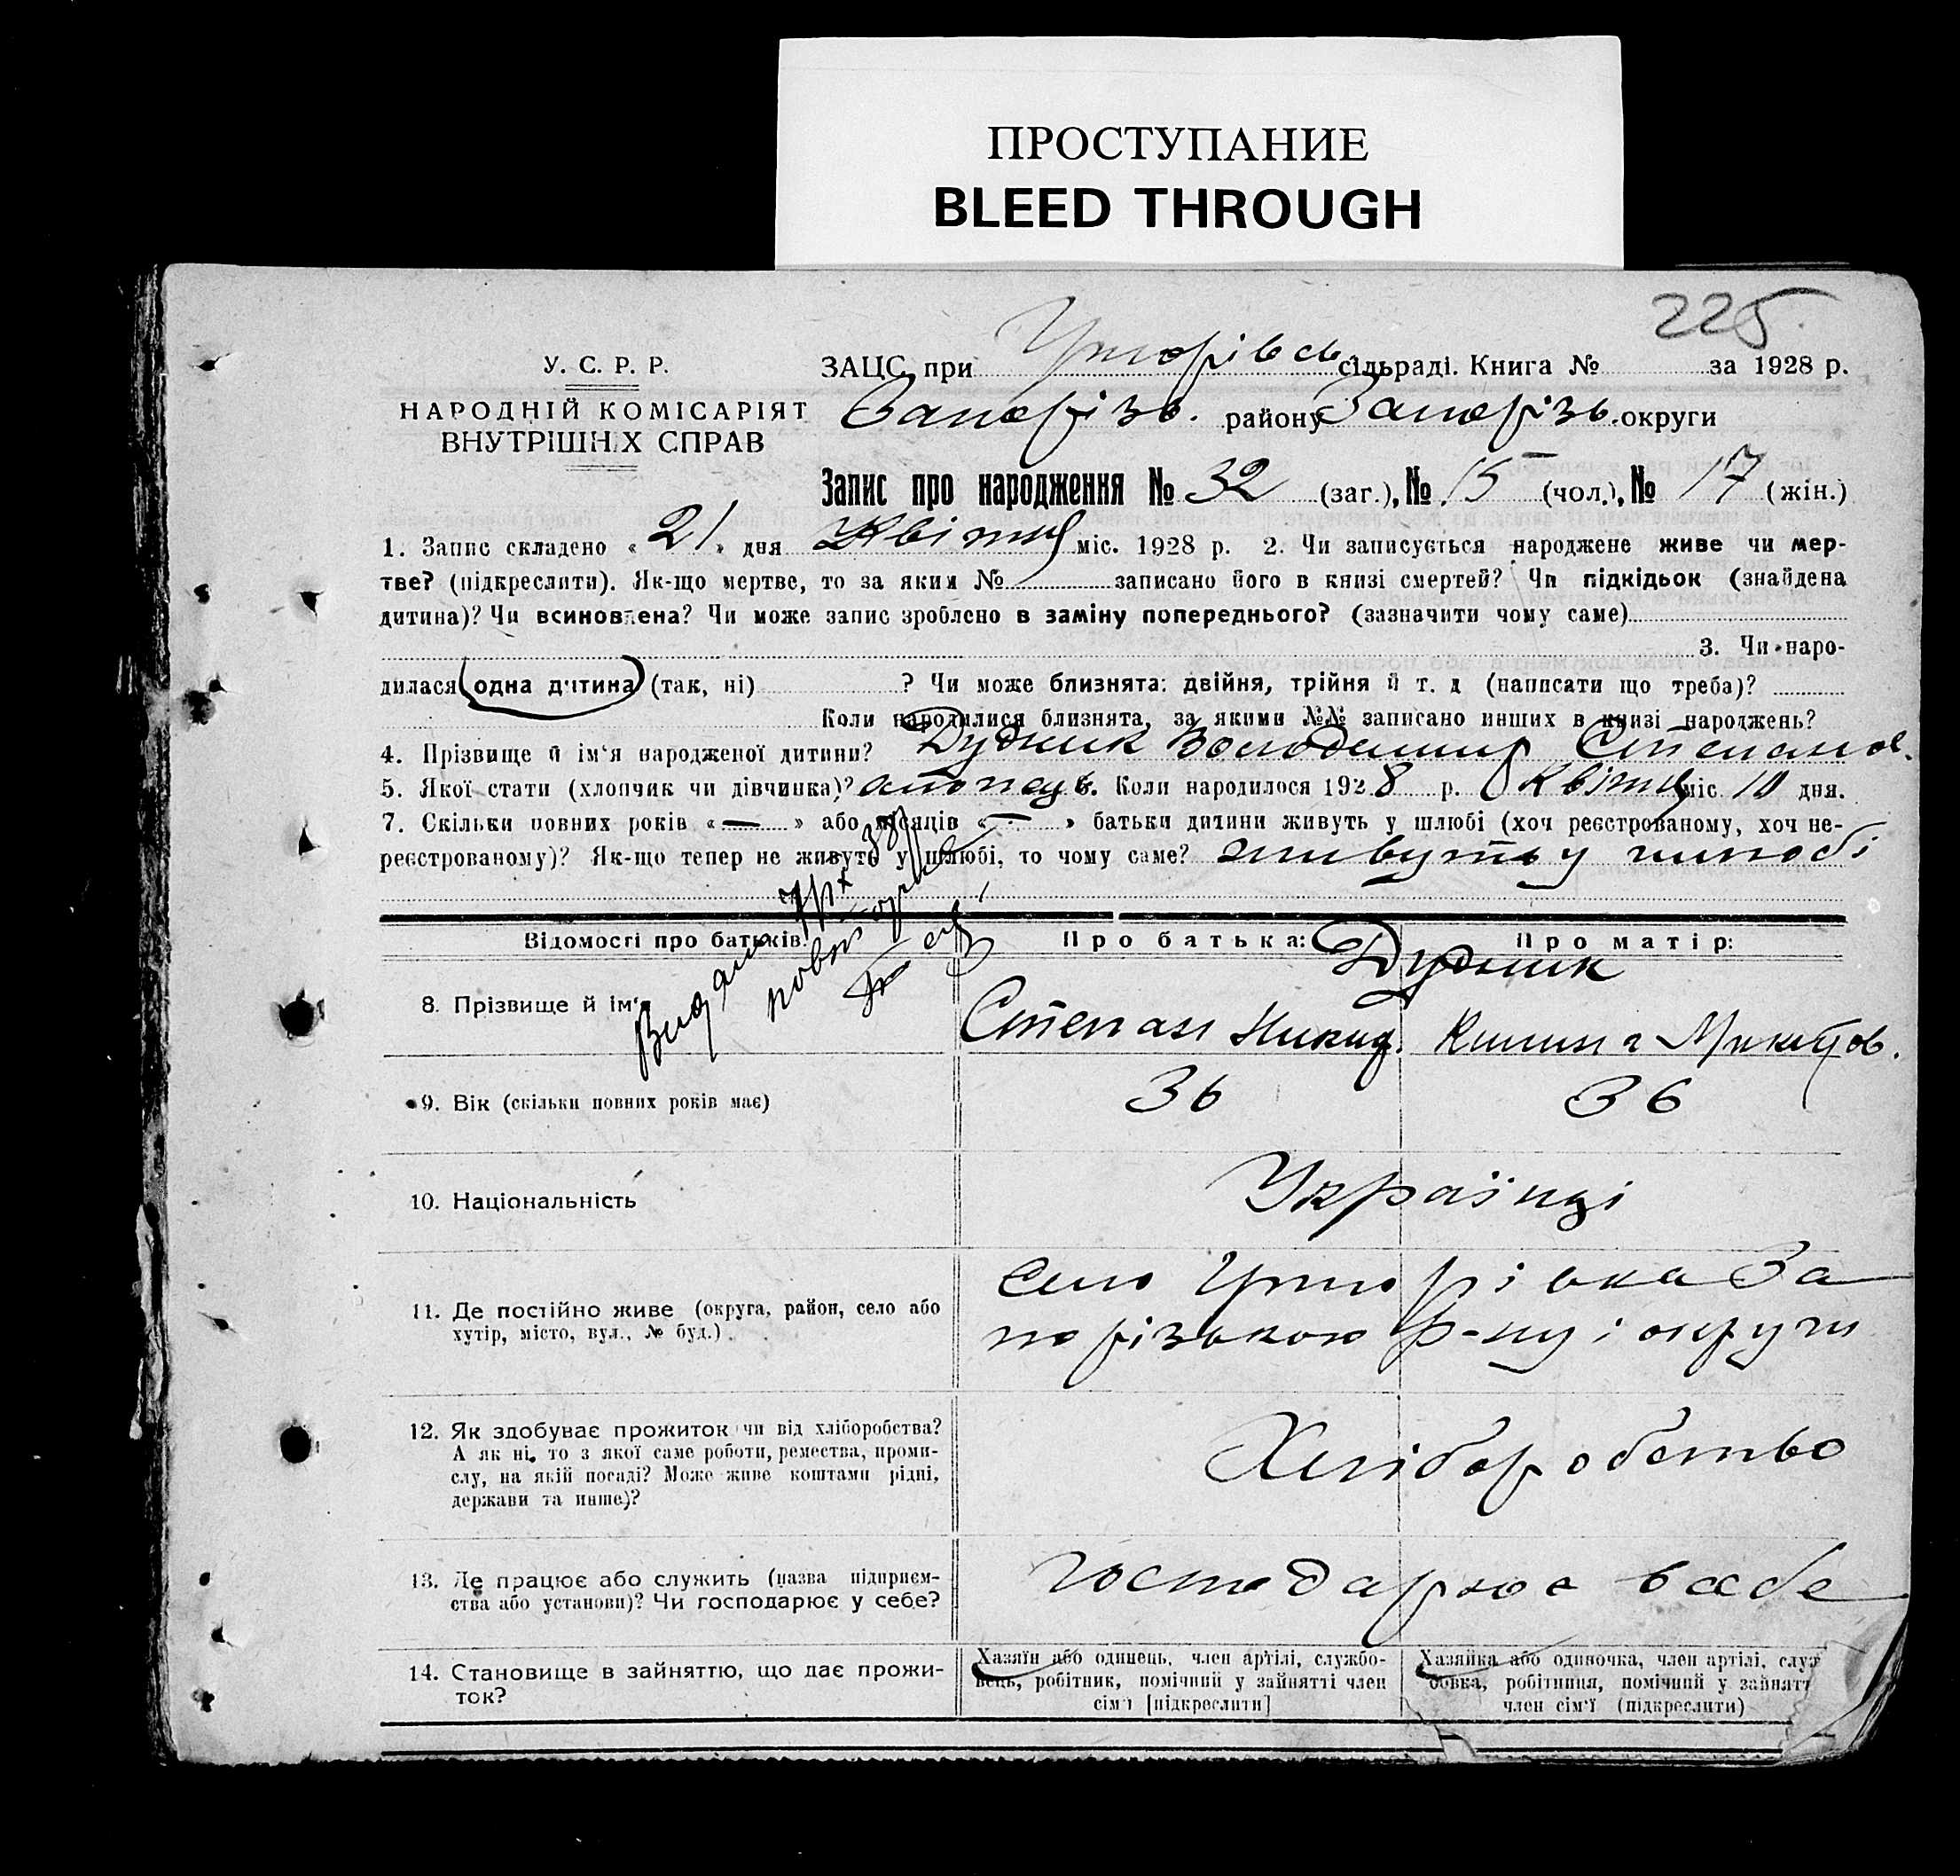 ПРОСТУПАНИЕ
BLEED THROUGH
225.
У. С. Р. Р.
НАРОДНІЙ КОМІСАРІЯТ
ВНУТРІШНІХ СПРАВ
ЗАЦС при сільраді. Книга № за 1928 р.
Запорізь. району Запорізь. округи
Запис про народження № 32 (заг.), № 15 (чол.), № 17 (жін.)
1. Запис складено « 21 » дня Квітня міс. 1928 р. 2. Чи записується народжене живе чи мер-
тве? (підкреслити). Як-що мертве, то за яким № записано його в книзі смертей? Чи підкідьок (знайдена
дитина)? Чи всиновлена? Чи може запис зроблено в заміну попереднього? (зазначити чому саме)
3. Чи наро-
дилася одна дитина (так, ні) ? Чи може близнята: двійня, трійня й т. д (написати що треба)?
Коли народилися близнята, за якими №№ записано инших в книзі народжень?
4. Прізвище й ім'я народженої дитини? Дудник Володимир Степанов.
5. Якої стати (хлопчик чи дівчинка)? хлопець. Коли народилося 1928 р. Квітня міс. 10 дня.
7. Скільки повних років « — » або місяців « — » батьки дитини живуть у шлюбі (хоч реєстрованому, хоч не-
реєстрованому)? Як-що тепер не живуть у шлюбі, то чому саме? живуть у шлюбі
Відомості про батьків.
Про батька:
Про матір:
Дудник
8. Прізвище й ім'я
Степан Никид.
Микитов.
9. Вік (скільки повних років має)
36
36
10. Національність
Українці
11. Де постійно живе (округа, район, село або
хутір, місто, вул., № буд.)
село За
порізького р-ну і округи
12. Як здобуває прожиток чи від хліборобства?
А як ні, то з якої саме роботи, ремества, проми-
слу, на якій посаді? Може живе коштами рідні,
держави та инше)?
Хліборобство
13. Де працює або служить (назва підприєм-
ства або установи)? Чи господарює у себе?
господарює в себе
14. Становище в зайняттю, що дає прожи-
ток?
Хазяїн або одинець, член артілі, службо-
вець, робітник, помічний у зайнятті член
сім'ї [підкреслити]
Хазяйка або одиночка, член артілі, служ
бовка, робітниця, помічний у зайнятт
член сім'ї (підкреслити)